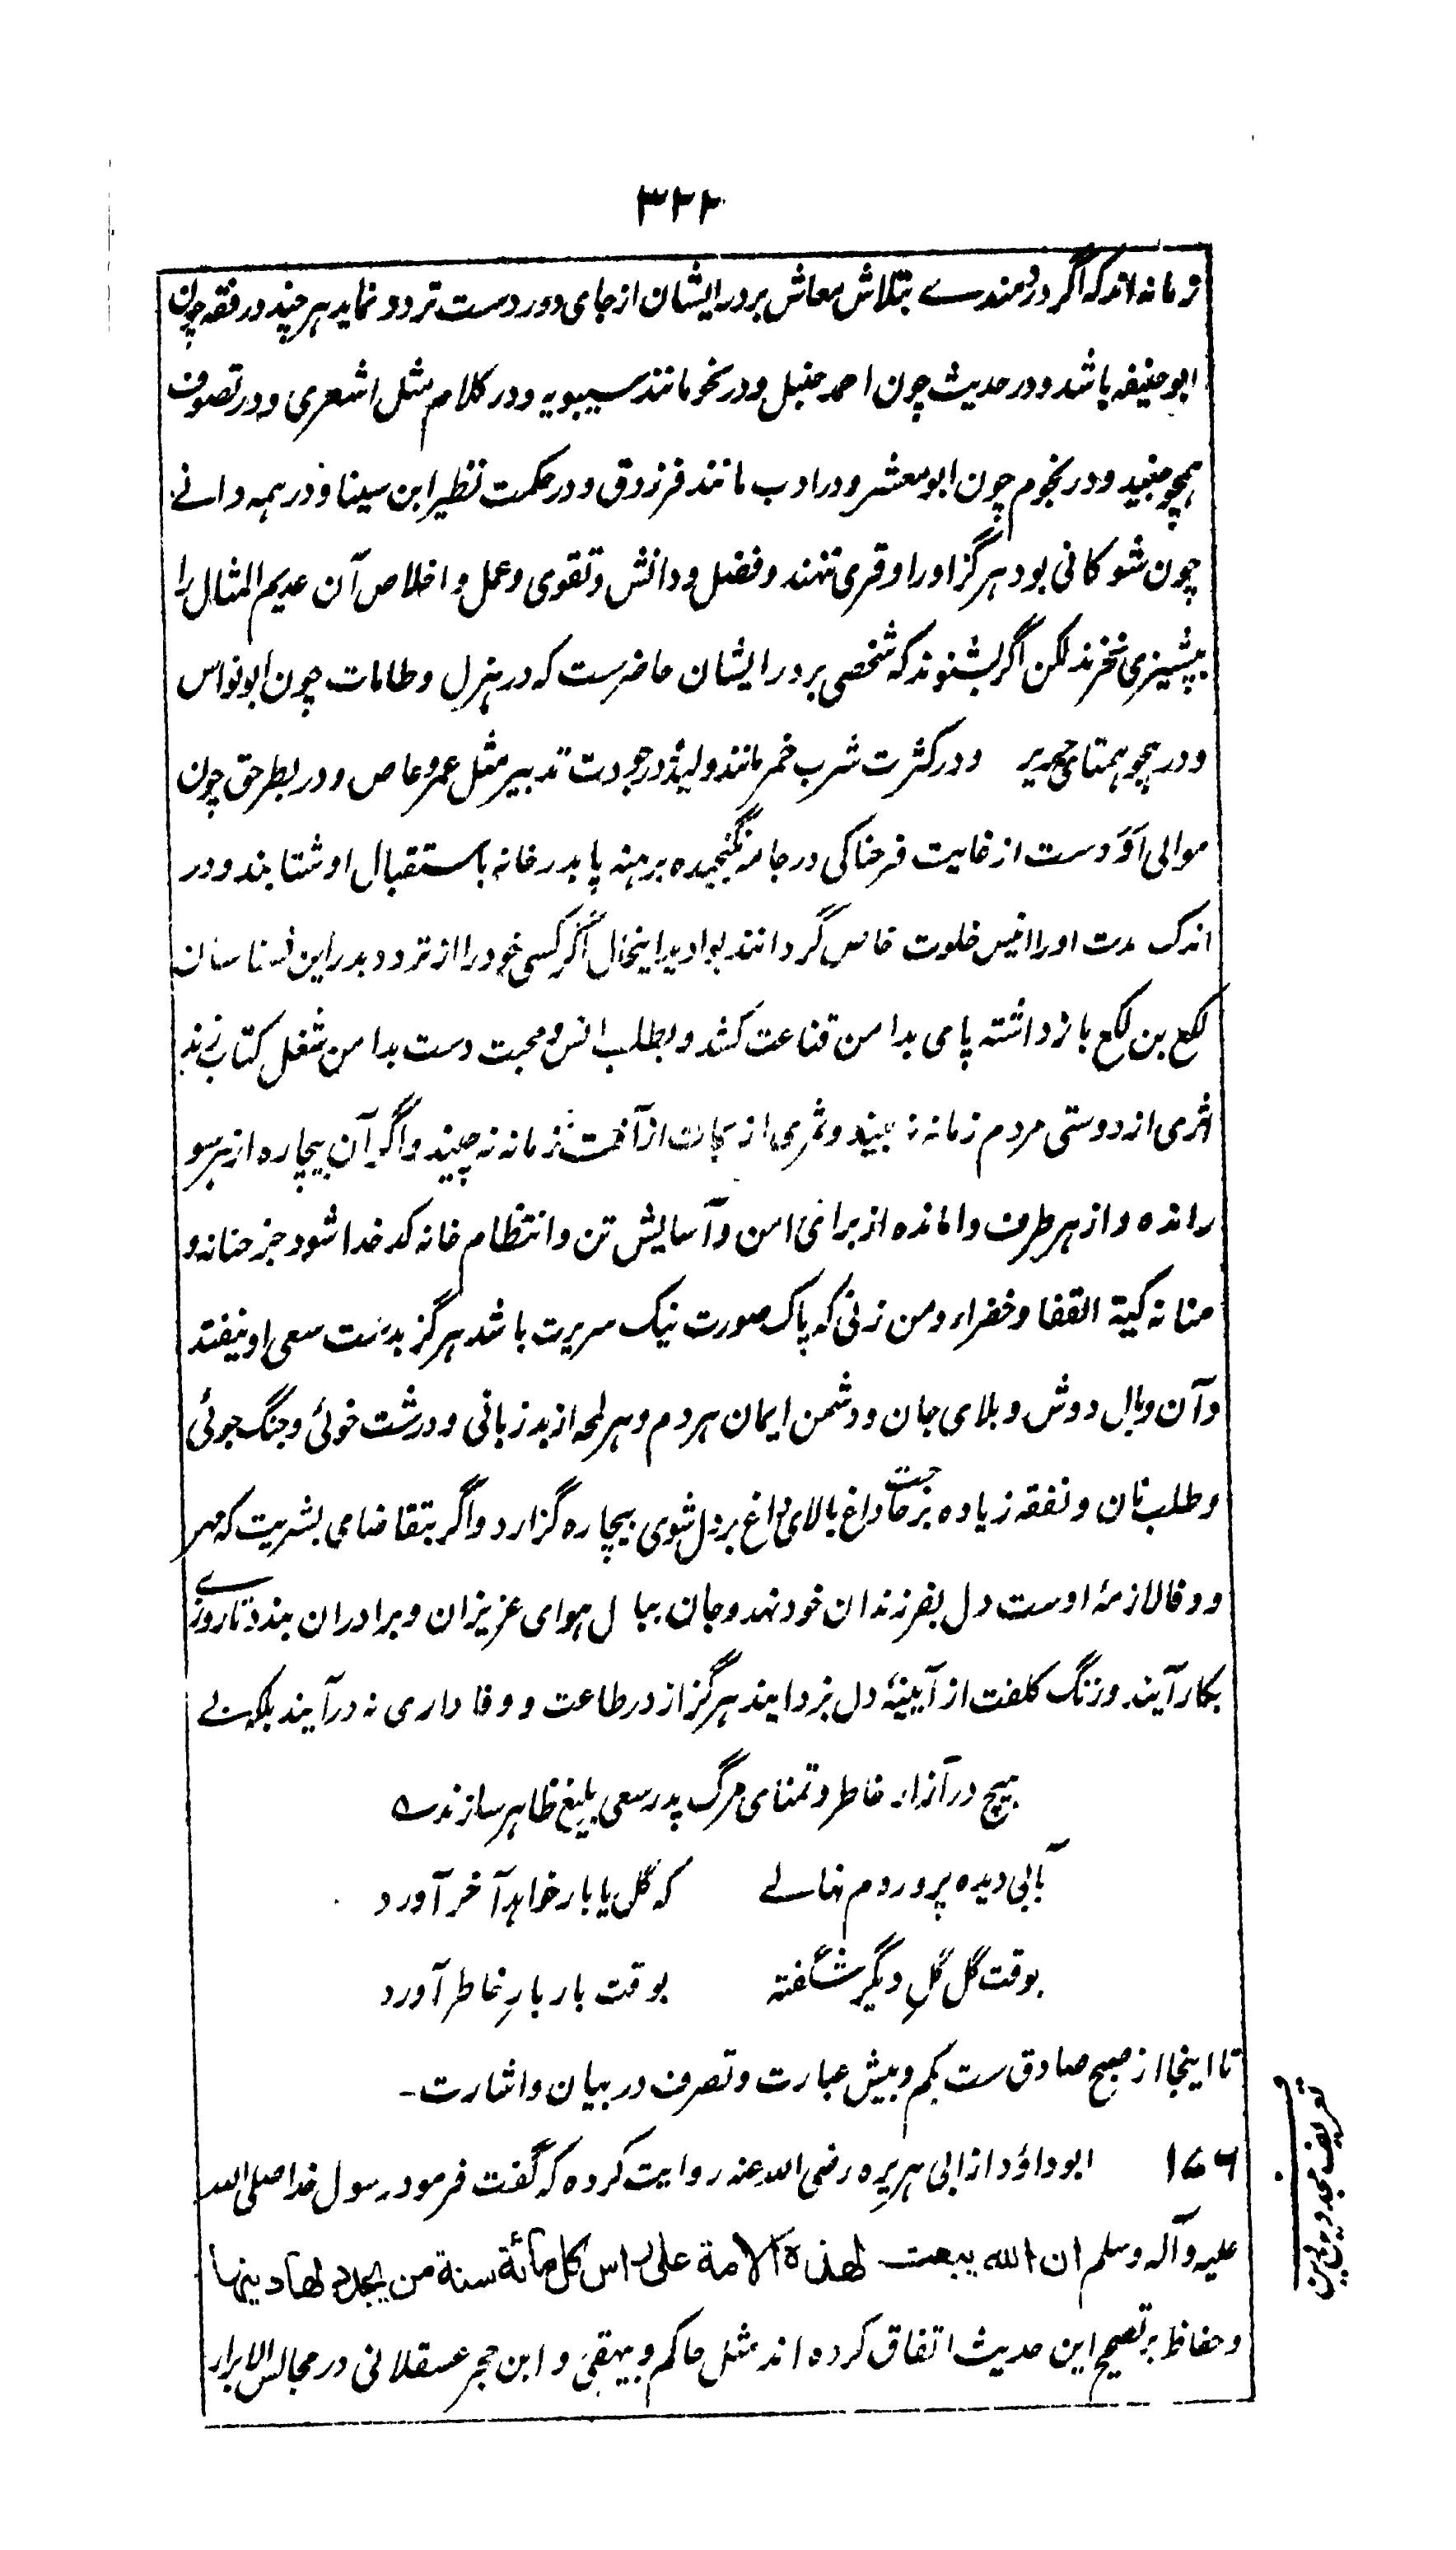 ۳۲۲
زمانه اند که اگر دردمندے بتلاش معاش بر در ایشان از جای دور دست تردد نماید هر چند در فقه چون
ابوحنیفه باشد و در حدیث چون احمد حنبل و در نحو مانند سیبویه و در کلام مثل اشعری و در تصوف
همچو جنید و در نجوم چون ابومعشر و در ادب مانند فرزدق و در حکمت نظیر ابن سینا و در همه دانی
چون شوکانی بود هرگز او را وقری ننهند و فضل و دانش و تقوی و عمل و اخلاص آن عدیم المثال را
بپشیزی نخرند لکن اگر بشنوند که شخصی بر در ایشان حاضرست که در هزل و طامات چون ابونواس
و در هجو همتای جریر و در کثرت شرب خمر مانند ولید و در جودت تدبیر مثل عمرو عاص و در بطر حق چون
موالی اوَدست از غایت فرحناکی در جامه نگنجیده برهنه پا بدر خانه باستقبال او شتابند و در
اندک مدت او را انیس خلوت خاص گردانند اینحال اگر کسی خود را از تردد بدر این نسناسان
لکع بن لکع باز داشته پای بدامن قناعت کشد و بطلب انس و محبت دست بدامن شغل کتاب زند
اثری از دوستی مردم زمانه نه بیند و ثمری از نجات از آفت زمانه نه چیند و اگر آن بیچاره از هر سو
رانده و از هر طرف وامانده از برای امن و آسایش تن و انتظام خانه کدخدا شود جز حنانه و
منانه کیة القفا و خضراء دمن زنی که پاک صورت نیک سریرت باشد هرگز بدست سعی او نیفتد
و آن وبال دوش و بلای جان و دشمن ایمان هر دم و هر لمحه از بد زبانی و درشت خوئی و جنگ جوئی
و طلب نان و نفقه زیاده بر حاجت داغ بالای داغ بر دل شوی بیچاره گزارد و اگر بتقاضای بشریت که مهر
و وفا لازمهٔ اوست دل بفرزندان خود نهد و جان ببال هوای عزیزان و برادران بندد تا روزے
بکار آیند و زنگ کلفت از آیینهٔ دل بزدایند هرگز از در طاعت و وفاداری نه درآیند بلکه بے
هیچ در آزار خاطر و تمنای مرگ پدر سعی بلیغ ظاهر سازند ے
بآبی دیده پروردم نهالے که گل یا بار خواهد آخر آورد
بوقت گل گلِ دیگر شگفته بوقت بار بارِ خاطر آورد
تا اینجا از صبح صادق ست بکم و بیش عبارت و تصرف در بیان و اشارت-
۱۷۶ ابوداؤد از ابی هریره رضی الله عنه روایت کرده که گفت فرمود رسول خدا صلی الله
علیه و آله و سلم ان الله یبعث لهذه الامة علی راس کل مائة سنة من یجدد لها دینها
و حفاظ بر تصحیح این حدیث اتفاق کرده اند مثل حاکم و بیهقی و ابن حجر عسقلانی در مجالس الابرار
تعریف مجددین